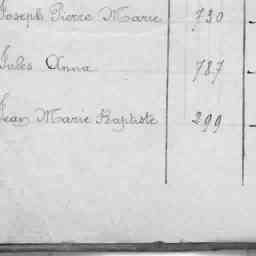 Joseph Pierre Marie 730
Jules Anna 787
Jean Marie Baptiste 299